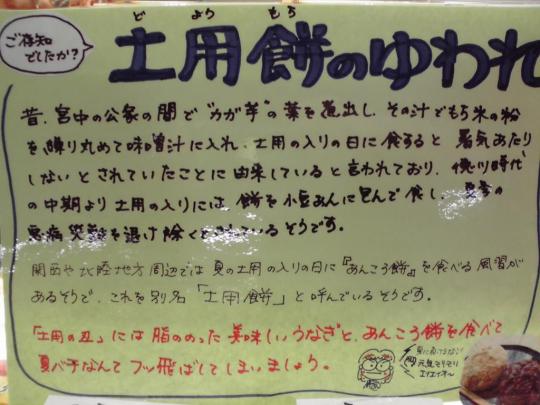 ご存知
でしたか?
ど よう もち
土用餅のゆわれ
昔、宮中の公家の間で"カガ芋"の葉を煮出し、その汁でもち米の粉
を練り丸めて味噌汁に入れ、土用の入りの日に食すると 暑気あたり
しないとされていたことに由来していると言われており、徳川時代
の中期より土用の入りには 餅を小豆あんに包んで食し、夏季の
悪病災難を退け除くとされているそうです。
関西や北陸地方周辺では夏の土用の入りの日に『あんころ餅』を食べる風習が
あるそうで、これを別名「土用餅」と呼んでいるそうです。
「土用の丑」には脂ののった美味しいうなぎと、あんころ餅を食べて
夏バテなんてフッ飛ばしてしまいましょう。
夏に負けるな!
元気モリモリ
エイエイオー